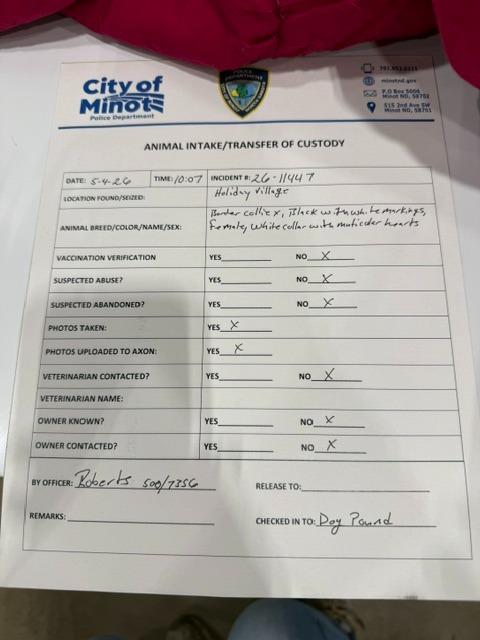 City of
Minot
Police Department
POLICE
DEPARTMENT
701.852.0111
minotnd.gov
P.O Box 5006
Minot ND, 58702
515 2nd Ave SW
Minot ND, 58701
ANIMAL INTAKE/TRANSFER OF CUSTODY
DATE: 5-4-26 TIME: 10:07 INCIDENT #: 26-11447
LOCATION FOUND/SEIZED: Holiday Village
ANIMAL BREED/COLOR/NAME/SEX: Border collie x, Black with white markings,
female, white collar with multicolor hearts
VACCINATION VERIFICATION YES NO X
SUSPECTED ABUSE? YES NO X
SUSPECTED ABANDONED? YES NO X
PHOTOS TAKEN: YES X
PHOTOS UPLOADED TO AXON: YES X
VETERINARIAN CONTACTED? YES NO X
VETERINARIAN NAME:
OWNER KNOWN? YES NO X
OWNER CONTACTED? YES NO X
BY OFFICER: Roberts 500/7356 RELEASE TO:
REMARKS: CHECKED IN TO: Dog Pound